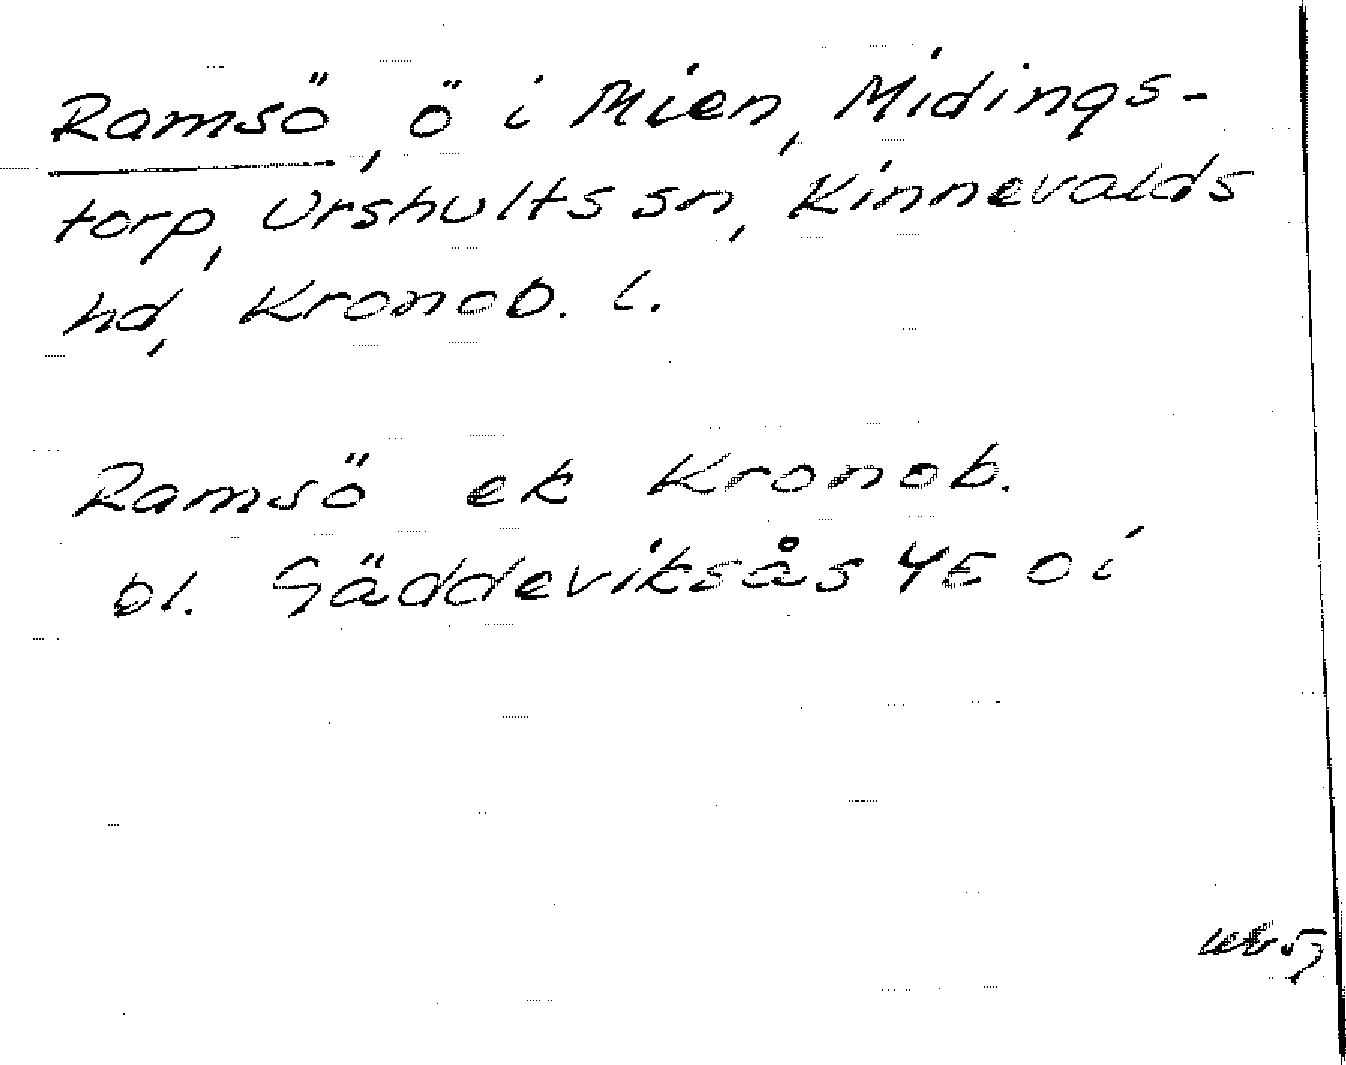 Ramsö, ö i Mien, Midings-
torp, Urshults sn, Kinnevalds
hd, Kronob. l.
Ramsö ek Kronob.
bl. Gäddeviksås 4E 0i